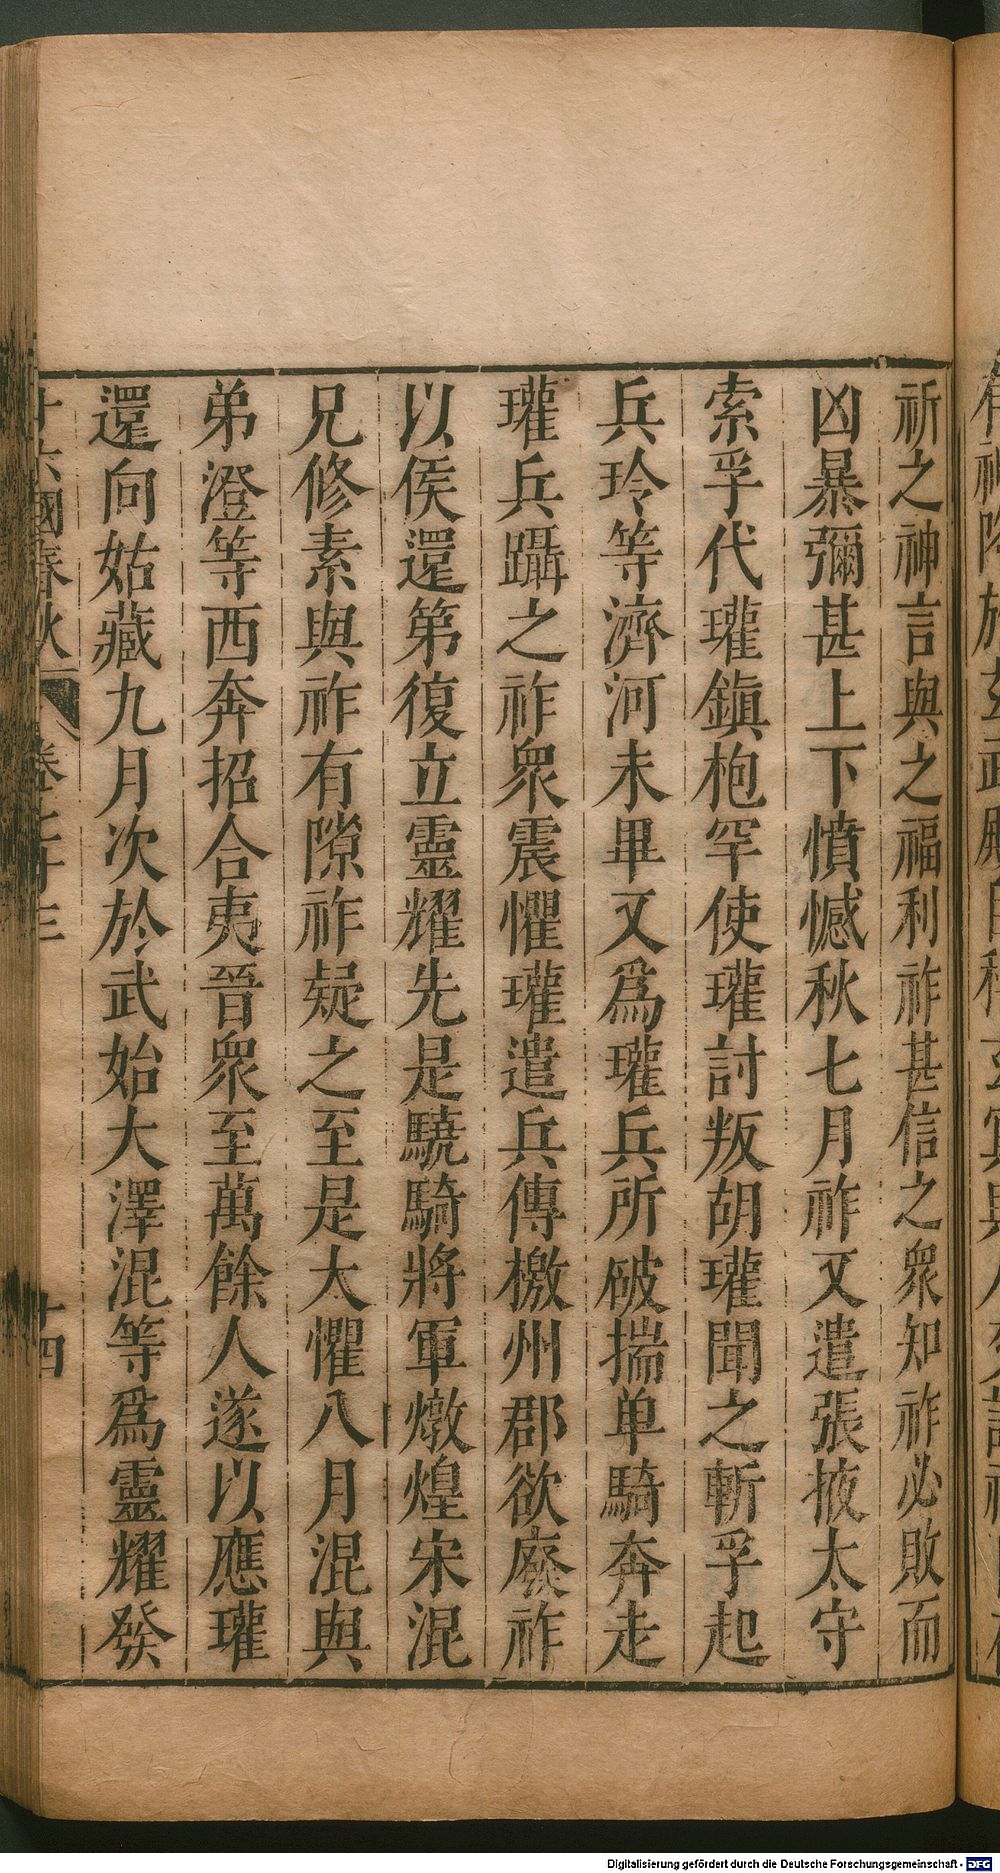 祈之神言與之福利祚甚信之衆知祚必敗而
凶暴彌甚上下憤憾秋七月祚又遣張掖太守
索孚代瓘鎮枹罕使瓘討叛胡瓘聞之斬孚起
兵玲等濟河未畢又爲瓘兵所破揣单騎奔走
瓘兵躡之祚衆震懼瓘遣兵傳檄州郡欲廢祚
以侯還第復立靈耀先是驍騎將軍燉煌宋混
兄修素與祚有隙祚疑之至是大懼八月混與
弟澄等西奔招合夷晉衆至萬餘人遂以應瓘
還向姑藏九月次於武始大澤混等爲靈耀發
十六國春秋 卷七十三 十四
Digitalisierung gefördert durch die Deutsche Forschungsgemeinschaft - DFG